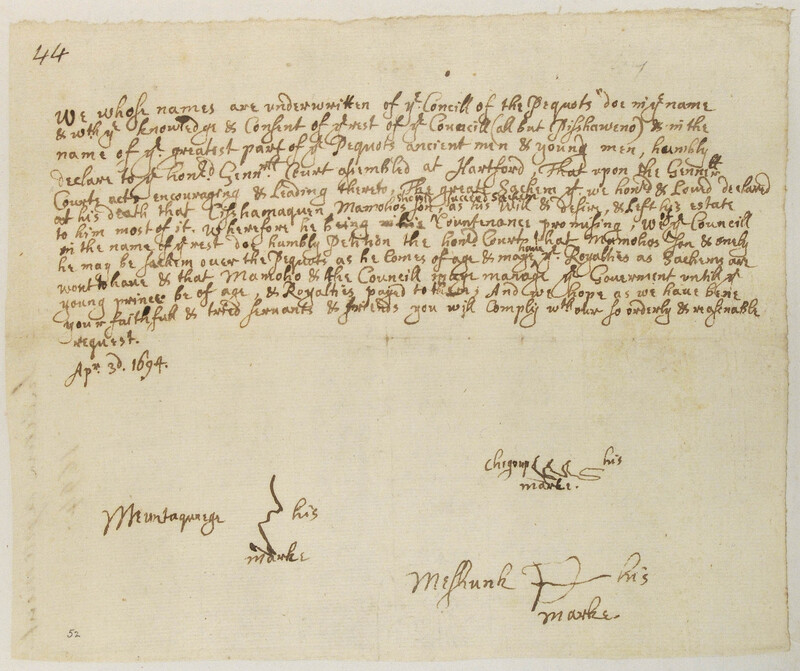 44
We whose names are underwritten of ye Concill of the Pequots doe in ye name
& wth ye knowledge & Consent of ye rest of ye Councill (all but Pisshaweno) & in the
name of ye greatest part of ye Pequots ancient men & young men, humbly
declare to ye honrd Gennrll Court asembled at Hartford, That upon the Gennrll
Courts acts encouraging & Leading thereto, The great Sachem yt we honrd & Loved declared
at his death that Cisshamaquen Mamohos son, should succeed Sachem as his Will & desire, & Left his estate
to him most of it. Wherefore he being Countenance promising, wth ye Councill
in the name of ye rest doe humbly Petition the honrd Court that Mamohos son & onely
he may be sachem over the Pequots as he Comes of age & may have ye Royalties as Sachems are
wont to have & that Mamoho & the Councill may manage ye Goverment untill ye
young prince be of age, & Royalties payed to them; And we hope as we have bene
your faithfull & trted servants & friends you will Comply wth our so orderly & reasonable
request.
Apr. 3d. 1694.
Chegoups his
marke.
Muntaquage his
marke
Meskunk his
marke.
52